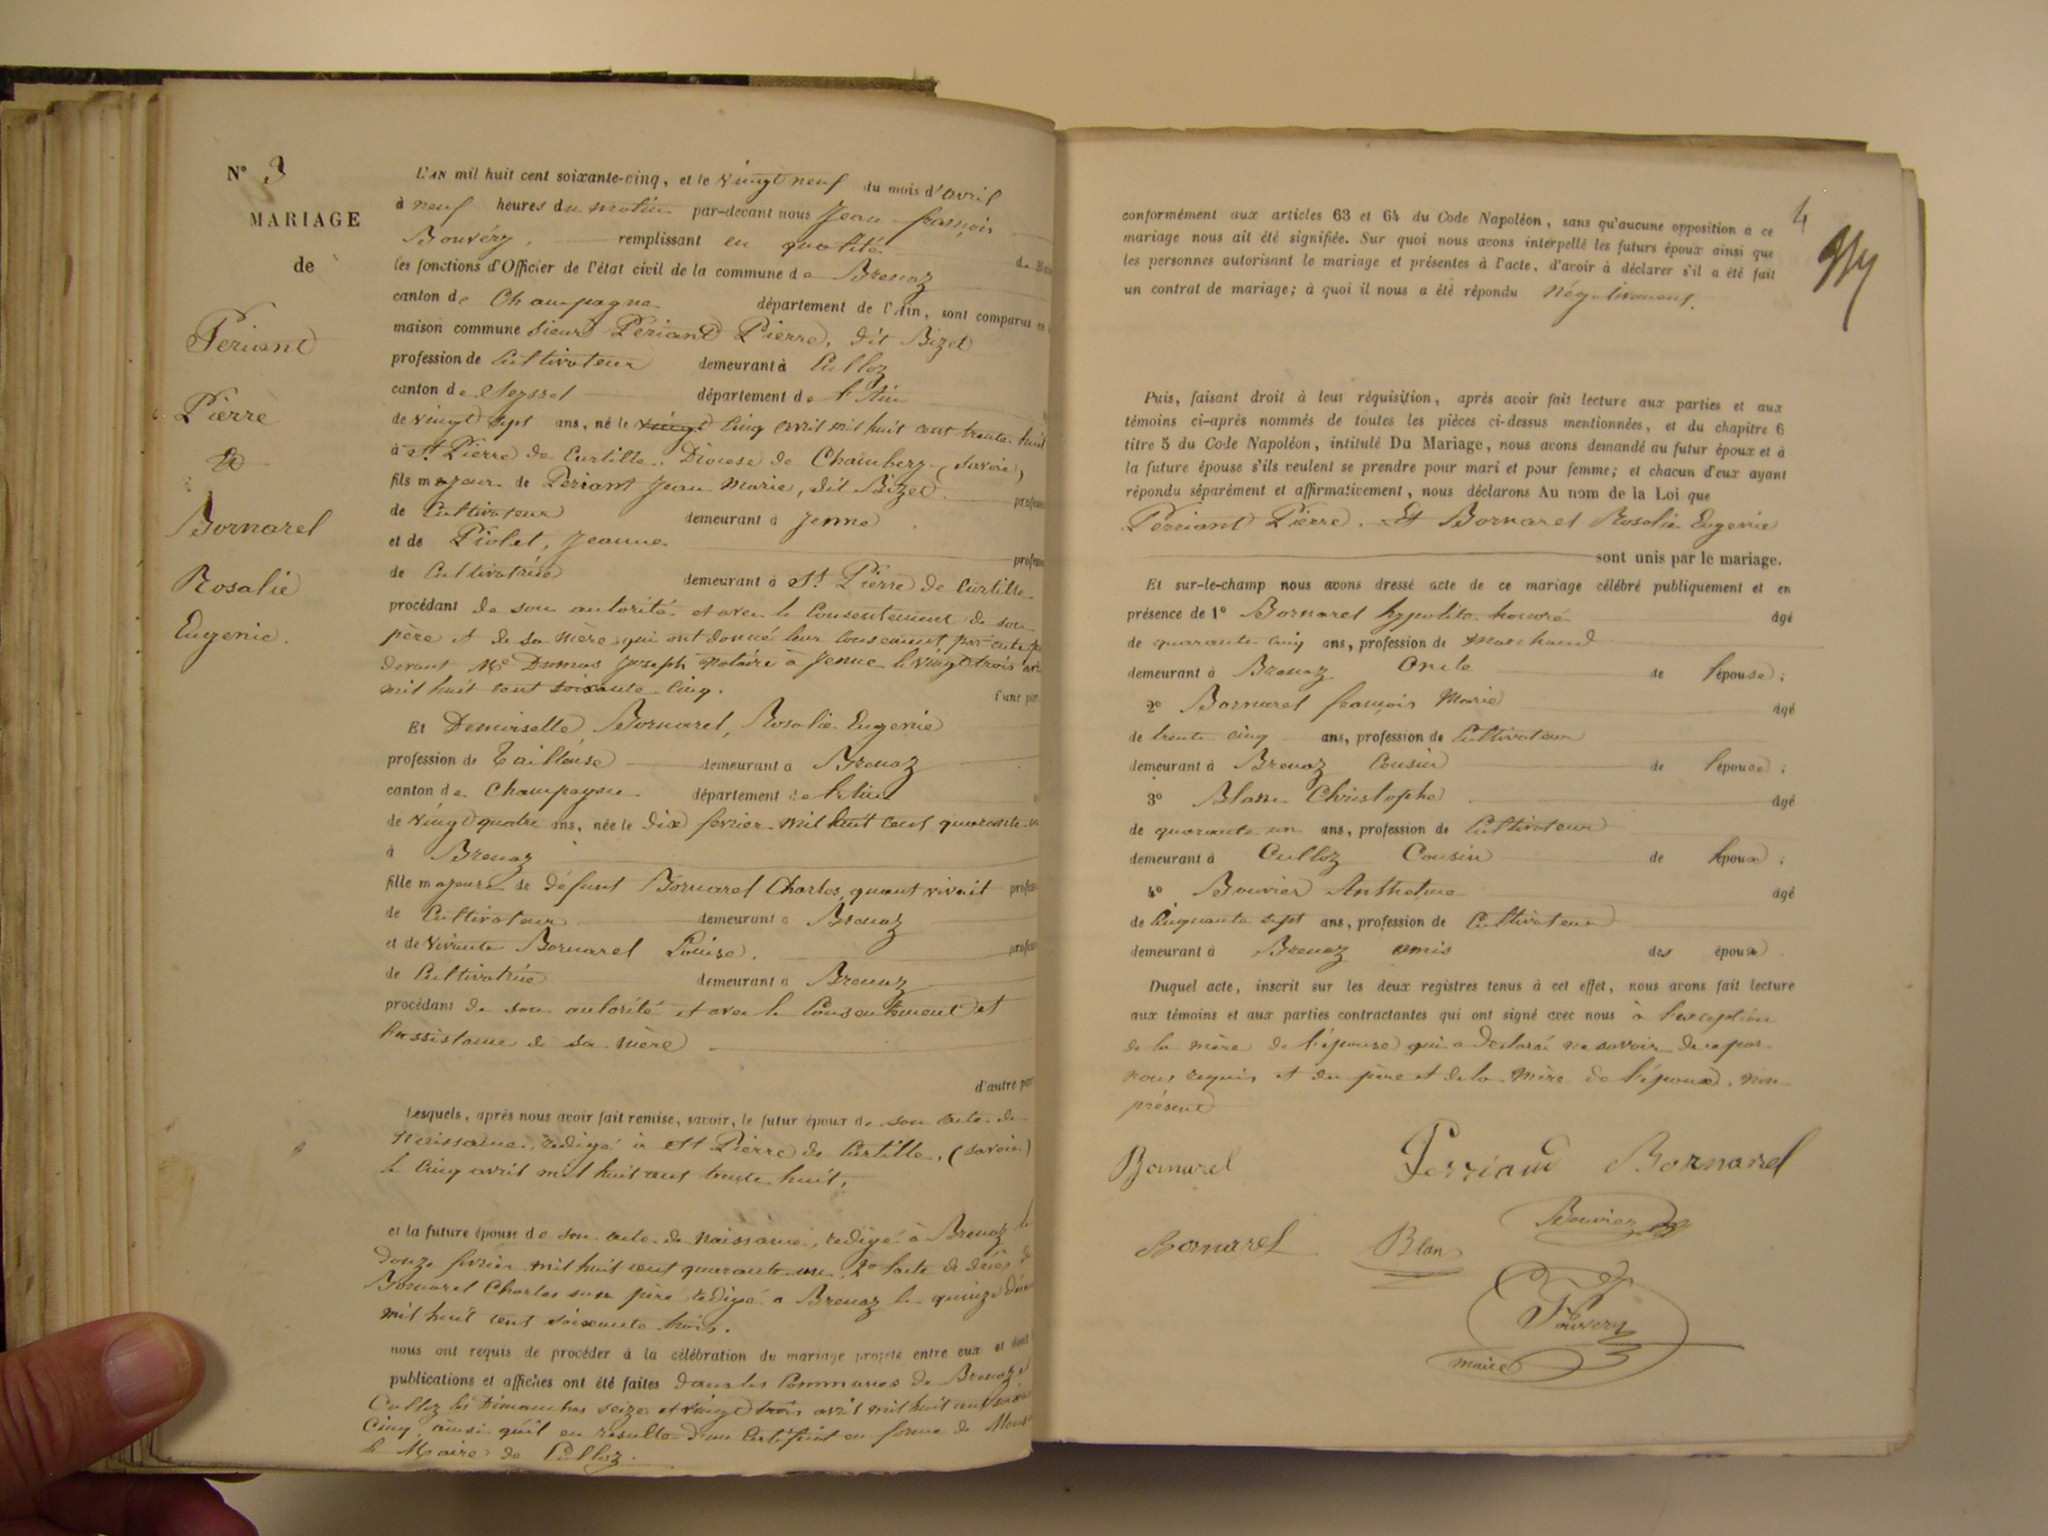 N° 3
MARIAGE
de
Periant
Pierre
Et
Bornarel
Rosalie
Eugenie.
L'AN mil huit cent soixante-cinq, et le vingt neuf du mois d'avril
à neuf heures du matin par-devant nous Jean françois
Bouvéry, remplissant en qualité
les fonctions d'Officier de l'état civil de la commune de Brenaz
canton de Champagne département de l'Ain, sont comparus en
maison commune sieur Periant Pierre, dit Bizet
profession de Cultivateur demeurant à Culloz
canton de Seyssel département de l'Ain
de vingt sept ans, né le vingt Cinq avril mil huit cent trente huit
à St Pierre de Curtille, Diocese de Chambery (Savoie)
fils majeur de Periant Jean Marie, dit Bizet profess
de Cultivateur demeurant à Jenne
et de Piolet, Jeanne profess
de Cultivatrice demeurant à St Pierre de Curtille
procédant de son autorité et avec le Consentement de son
père et de sa mère qui ont donné leur consement par acte
devant Me Dumas Joseph notaire à Jenne le vingt trois
mil huit cent soixante cinq. d'une part
Et Demoiselle Bornarel, Rosalie Eugenie
profession de Tailleuse demeurant à Brenaz
canton de Champagne département de l'Ain
de vingt quatre ans, née le Dix fevrier mil huit cent quarante un
à Brenaz
fille majeure de défunt Bornarel Charles, quant vivait profess
de Cultivateur demeurant à Brenaz
et de vivante Bornarel Louise. profess
de Cultivatrice demeurant à Brenaz
procédant de son autorité et avec le Consentement et
l'assistance de sa mère
d'autre part
Lesquels, après nous avoir fait remise, savoir, le futur époux de son acte de
Naissance, redigé à St Pierre de Curtille, (savoie)
le Cinq avril mil huit cent trente huit,
et la future épouse de son acte de Naissance, redigé à Brenaz le
Douze fevrier mil huit cent quarante un 2° l'acte de décès de
Bornarel Charles son père redigé a Brenaz le quinze
mil huit cent soixante trois.
nous ont requis de procéder à la célébration du mariage projeté entre eux et dont
publications et affiches ont été faites dans les Communes de Brenaz et
Culloz les Dimanches seize et vingt trois avril mil huit cent soixante
Cinq, ainsi qu'il en résulte d'un Certificat en forme de
le Maire de Culloz.
4
conformément aux articles 63 et 64 du Code Napoléon, sans qu'aucune opposition a ce
mariage nous ait été signifiée. Sur quoi nous avons interpellé les futurs époux ainsi que
les personnes autorisant le mariage et présentes à l'acte, d'avoir à déclarer s'il a été fait
un contrat de mariage; à quoi il nous a été répondu négativement.
Puis, faisant droit à leur réquisition, après avoir fait lecture aux parties et aux
témoins ci-après nommés de toutes les pièces ci-dessus mentionnées, et du chapitre 6
titre 5 du Code Napoléon, intitulé Du Mariage, nous avons demandé au futur époux et à
la future épouse s'ils veulent se prendre pour mari et pour femme; et chacun d'eux ayant
répondu séparément et affirmativement, nous déclarons Au nom de la Loi que
Perriant Pierre. Et Bornarel Rosalie Eugenie
sont unis par le mariage.
Et sur-le-champ nous avons dressé acte de ce mariage célébré publiquement et en
présence de 1° Bornarel hypolite honoré âgé
de quarante cinq ans, profession de Marchand
demeurant à Brenaz Oncle de l'épouse;
2° Bornarel françois Marie âgé
de trente cinq ans, profession de Cultivateur
demeurant à Brenaz Cousin de l'épouse;
3° Blanc Christophe âgé
de quarante un ans, profession de Cultivateur
demeurant à Culloz Cousin de l'époux;
4° Bouvier Anthelme âgé
de Cinquante sept ans, profession de Cultivateur
demeurant à Brenaz amis des époux
Duquel acte, inscrit sur les deux registres tenus à cet effet, nous avons fait lecture
aux témoins et aux parties contractantes qui ont signé avec nous à l'exception
de la mère de l'épouse qui a declaré ne savoir de ce par
nous requis et du père et de la Mère de l'époux, non
présent
Bornarel Perriand Bornarel
Bouvier
Bornarel Blan
Bouvery
maire